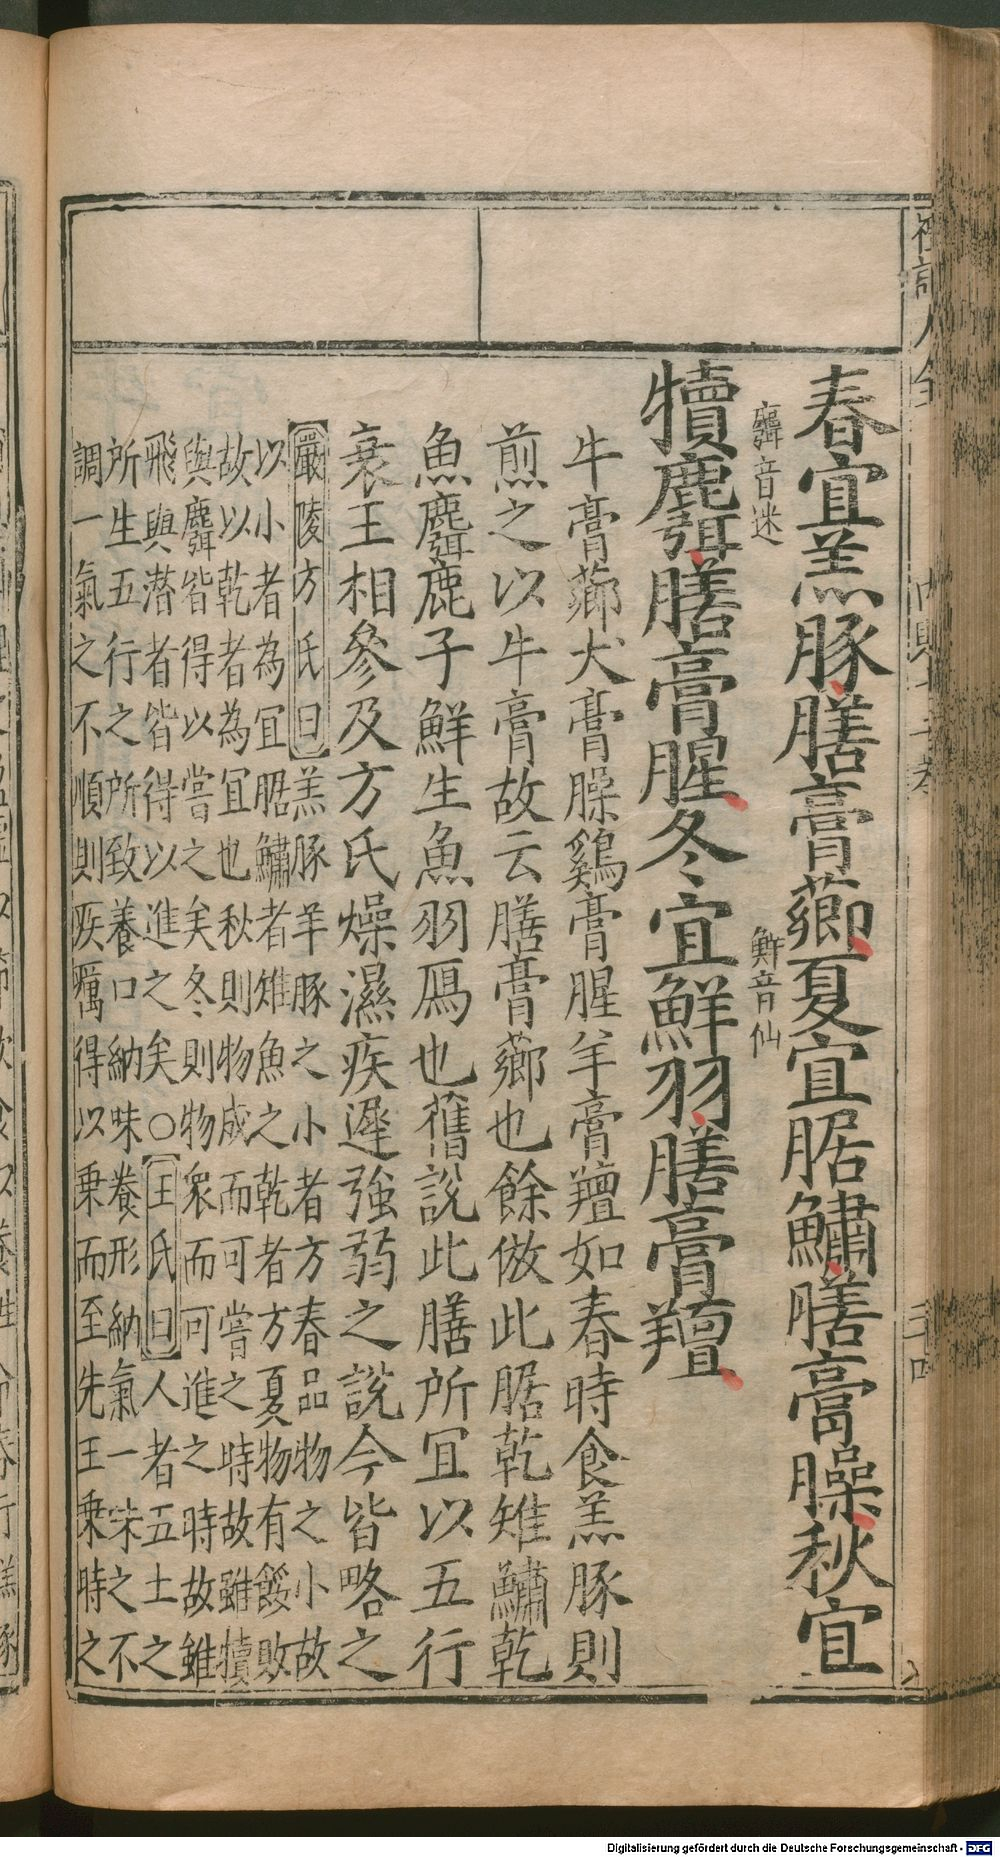 春宜羔豚膳膏薌夏宜腒鱐膳膏臊秋宜
麛音迷 鮮音仙
犢麛膳膏腥冬宜鮮羽膳膏羶
牛膏薌犬膏臊鷄膏腥羊膏羶如春時食羔豚則
煎之以牛膏故云膳膏薌也餘倣此腒乾雉鱐乾
魚麛鹿子鮮生魚羽鴈也舊說此膳所宜以五行
衰王相參及方氏燥濕疾遲強弱之說今皆略之
嚴陵方氏曰羔豚羊豚之小者方春品物之小故
以小者為宜腒鱐者雉魚之乾者方夏物有餒敗
故以乾者為宜也秋則物成而可嘗之時故雖犢
與麛皆得以嘗之矣冬則物衆而可進之時故雖
飛與潛者皆得以進之矣○王氏曰人者五土之
所生五行之所致養口納味養形納氣一味之不
調一氣之不順則疾癘得以乗而至先王乗時之
三十四
Digitalisierung gefördert durch die Deutsche Forschungsgemeinschaft - DFG